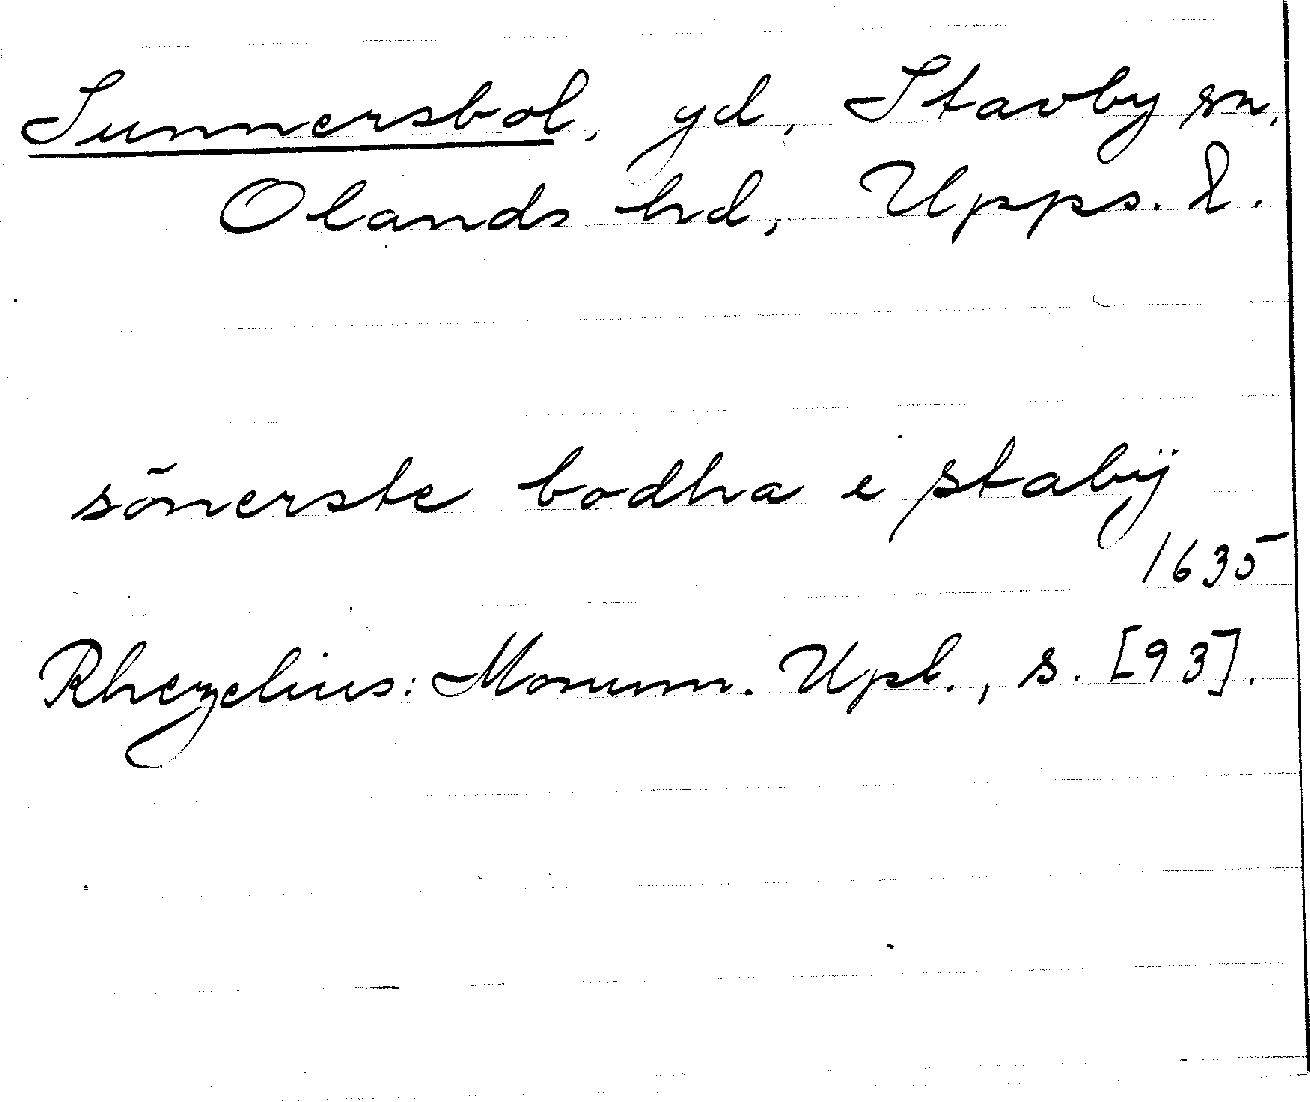 Sunnersbol, gd, Stavby sn,
Olands hd, Upps. l.
sōnerste bodha e stabÿ
1635
Rhezelius: Monum. Upl., s. [93].